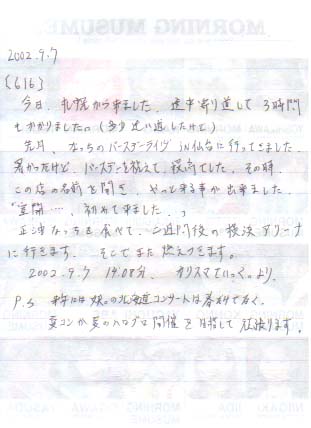 MORNING MUSUME。
2002.9.7
[616]
今日、札幌から来ました。途中寄り道して3時間
もかかりました。(多少 迷い道したけど)
先月、なっちのバースデーライヴ iN仙台に行ってきました。
暑かったけど、バースデーを祝えて、最高でした。その時、
この店の名前を聞き、やっと来る事が出来ました。
"室蘭…、初めて来ました。"
正油なっちを食べて、二週間後の横浜アリーナ
に行きます。そこでまた燃えつきます。
2002.9.7 14.08分、カリスマ より
P.S 来年には娘。の北海道コンサートは春だけでなく、
夏コンか夏のハロプロ開催を目指して頑張ります。
NIIGAKI IIDA OGAWA YASUDA